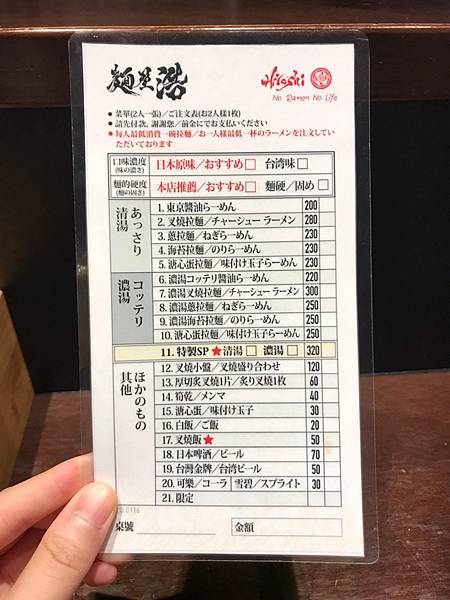 麵屋浩
Hiroshi
No Ramen No Life
● 菜單(2人一張)/ご注文表(お2人様1枚)
● 請先付款，謝謝您/前金にてお支払いください
● 每人最低消費一碗拉麵/お一人様最低一杯のラーメンを注文していただいております
口味濃度 (味の濃さ) 日本原味/おすすめ□ 台湾味□
麵的硬度 (麵の固さ) 本店推薦/おすすめ□ 麵硬/固め□
あっさり 清湯
1. 東京醬油らーめん 200
2. 叉燒拉麵/チャーシューラーメン 280
3. 蔥拉麵/ねぎらーめん 230
4. 海苔拉麵/のりらーめん 230
5. 溏心蛋拉麵/味付け玉子らーめん 230
コッテリ 濃湯
6. 濃湯コッテリ醬油らーめん 220
7. 濃湯叉燒拉麵/チャーシューラーメン 300
8. 濃湯蔥拉麵/ねぎらーめん 250
9. 濃湯海苔拉麵/のりらーめん 250
10. 濃湯溏心蛋拉麵/味付け玉子らーめん 250
11. 特製SP ★ 清湯□ 濃湯□ 320
ほかのもの 其他
12. 叉燒小盤/叉燒盛り合わせ 120
13. 厚切炙叉燒1片/炙り叉燒1枚 60
14. 筍乾/メンマ 40
15. 溏心蛋/味付け玉子 30
16. 白飯/ご飯 20
17. 叉燒飯★ 50
18. 日本啤酒/ビール 70
19. 台灣金牌/台湾ビール 50
20. 可樂/コーラ 雪碧/スプライト 30
21. 限定
桌號
金額